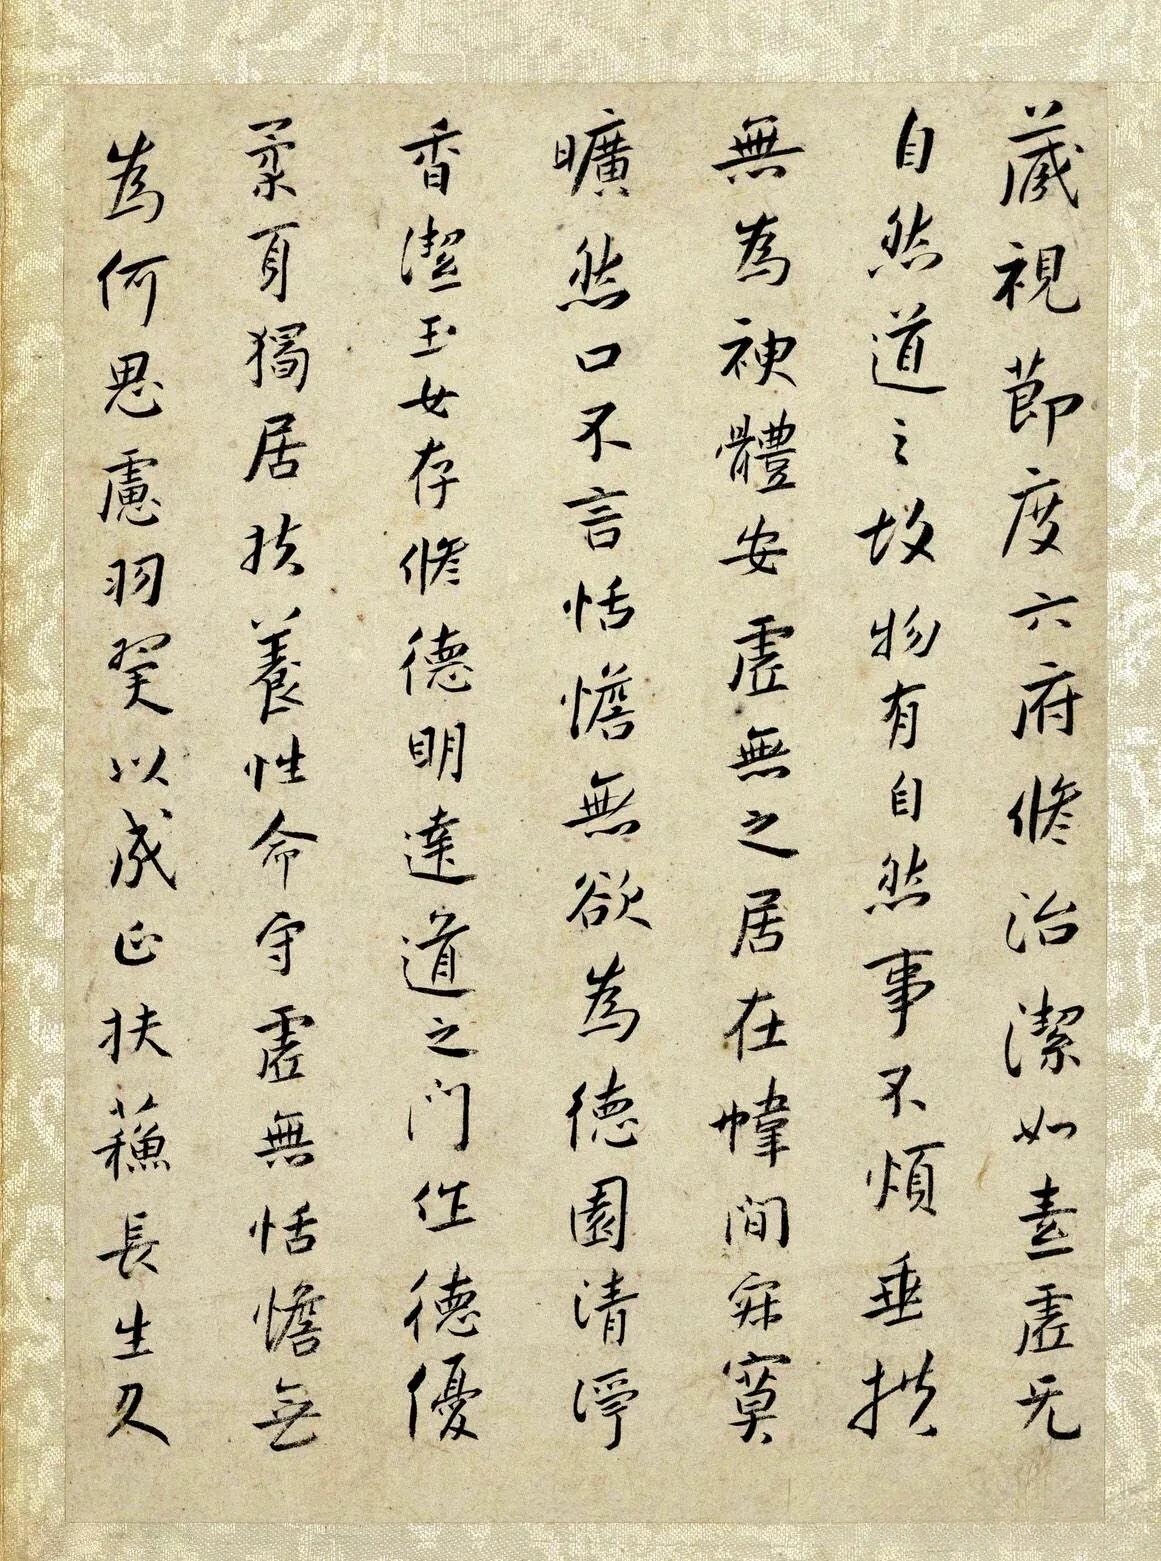 藏視節度六府脩治潔如素虛无
自然道之故物有自然事不煩垂拱
無為神體安虛無之居在幃間寂寞
曠然口不言恬憺無欲為德園清淨
香潔玉女存脩德明達道之門作德優
柔身獨居扶養性命守虛無恬憺無
為何思慮羽翼以成正扶蘓長生久